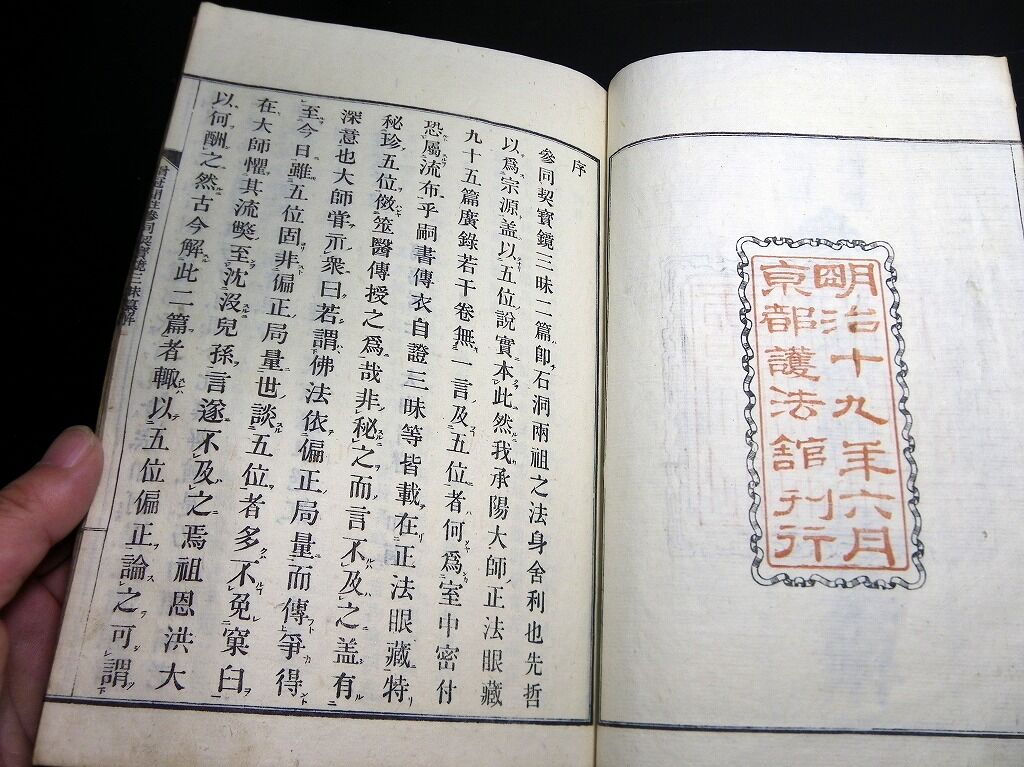 明治十九年六月
京都護法舘刊行
序
參同契寶鏡三昧二篇卽石洞兩祖之法身舍利也先哲
以爲宗源盖以五位說實本此然我承陽大師正法眼藏
九十五篇廣錄若干卷無一言及五位者何爲室中密付
恐屬流布乎嗣書傳衣自證三昧等皆載在正法眼藏特
秘珍五位倣巫醫傳授之爲哉非秘之而言不及之盖有
深意也大師甞示衆曰若謂佛法依偏正局量而傳爭得
至今日雖五位固非偏正局量世談五位者多不免窠臼
在大師懼其流弊至沈沒兒孫言遂不及之焉祖恩洪大
以何酬之然古今解此二篇者輙以五位偏正論之可謂
冠註參同契寶鏡三昧